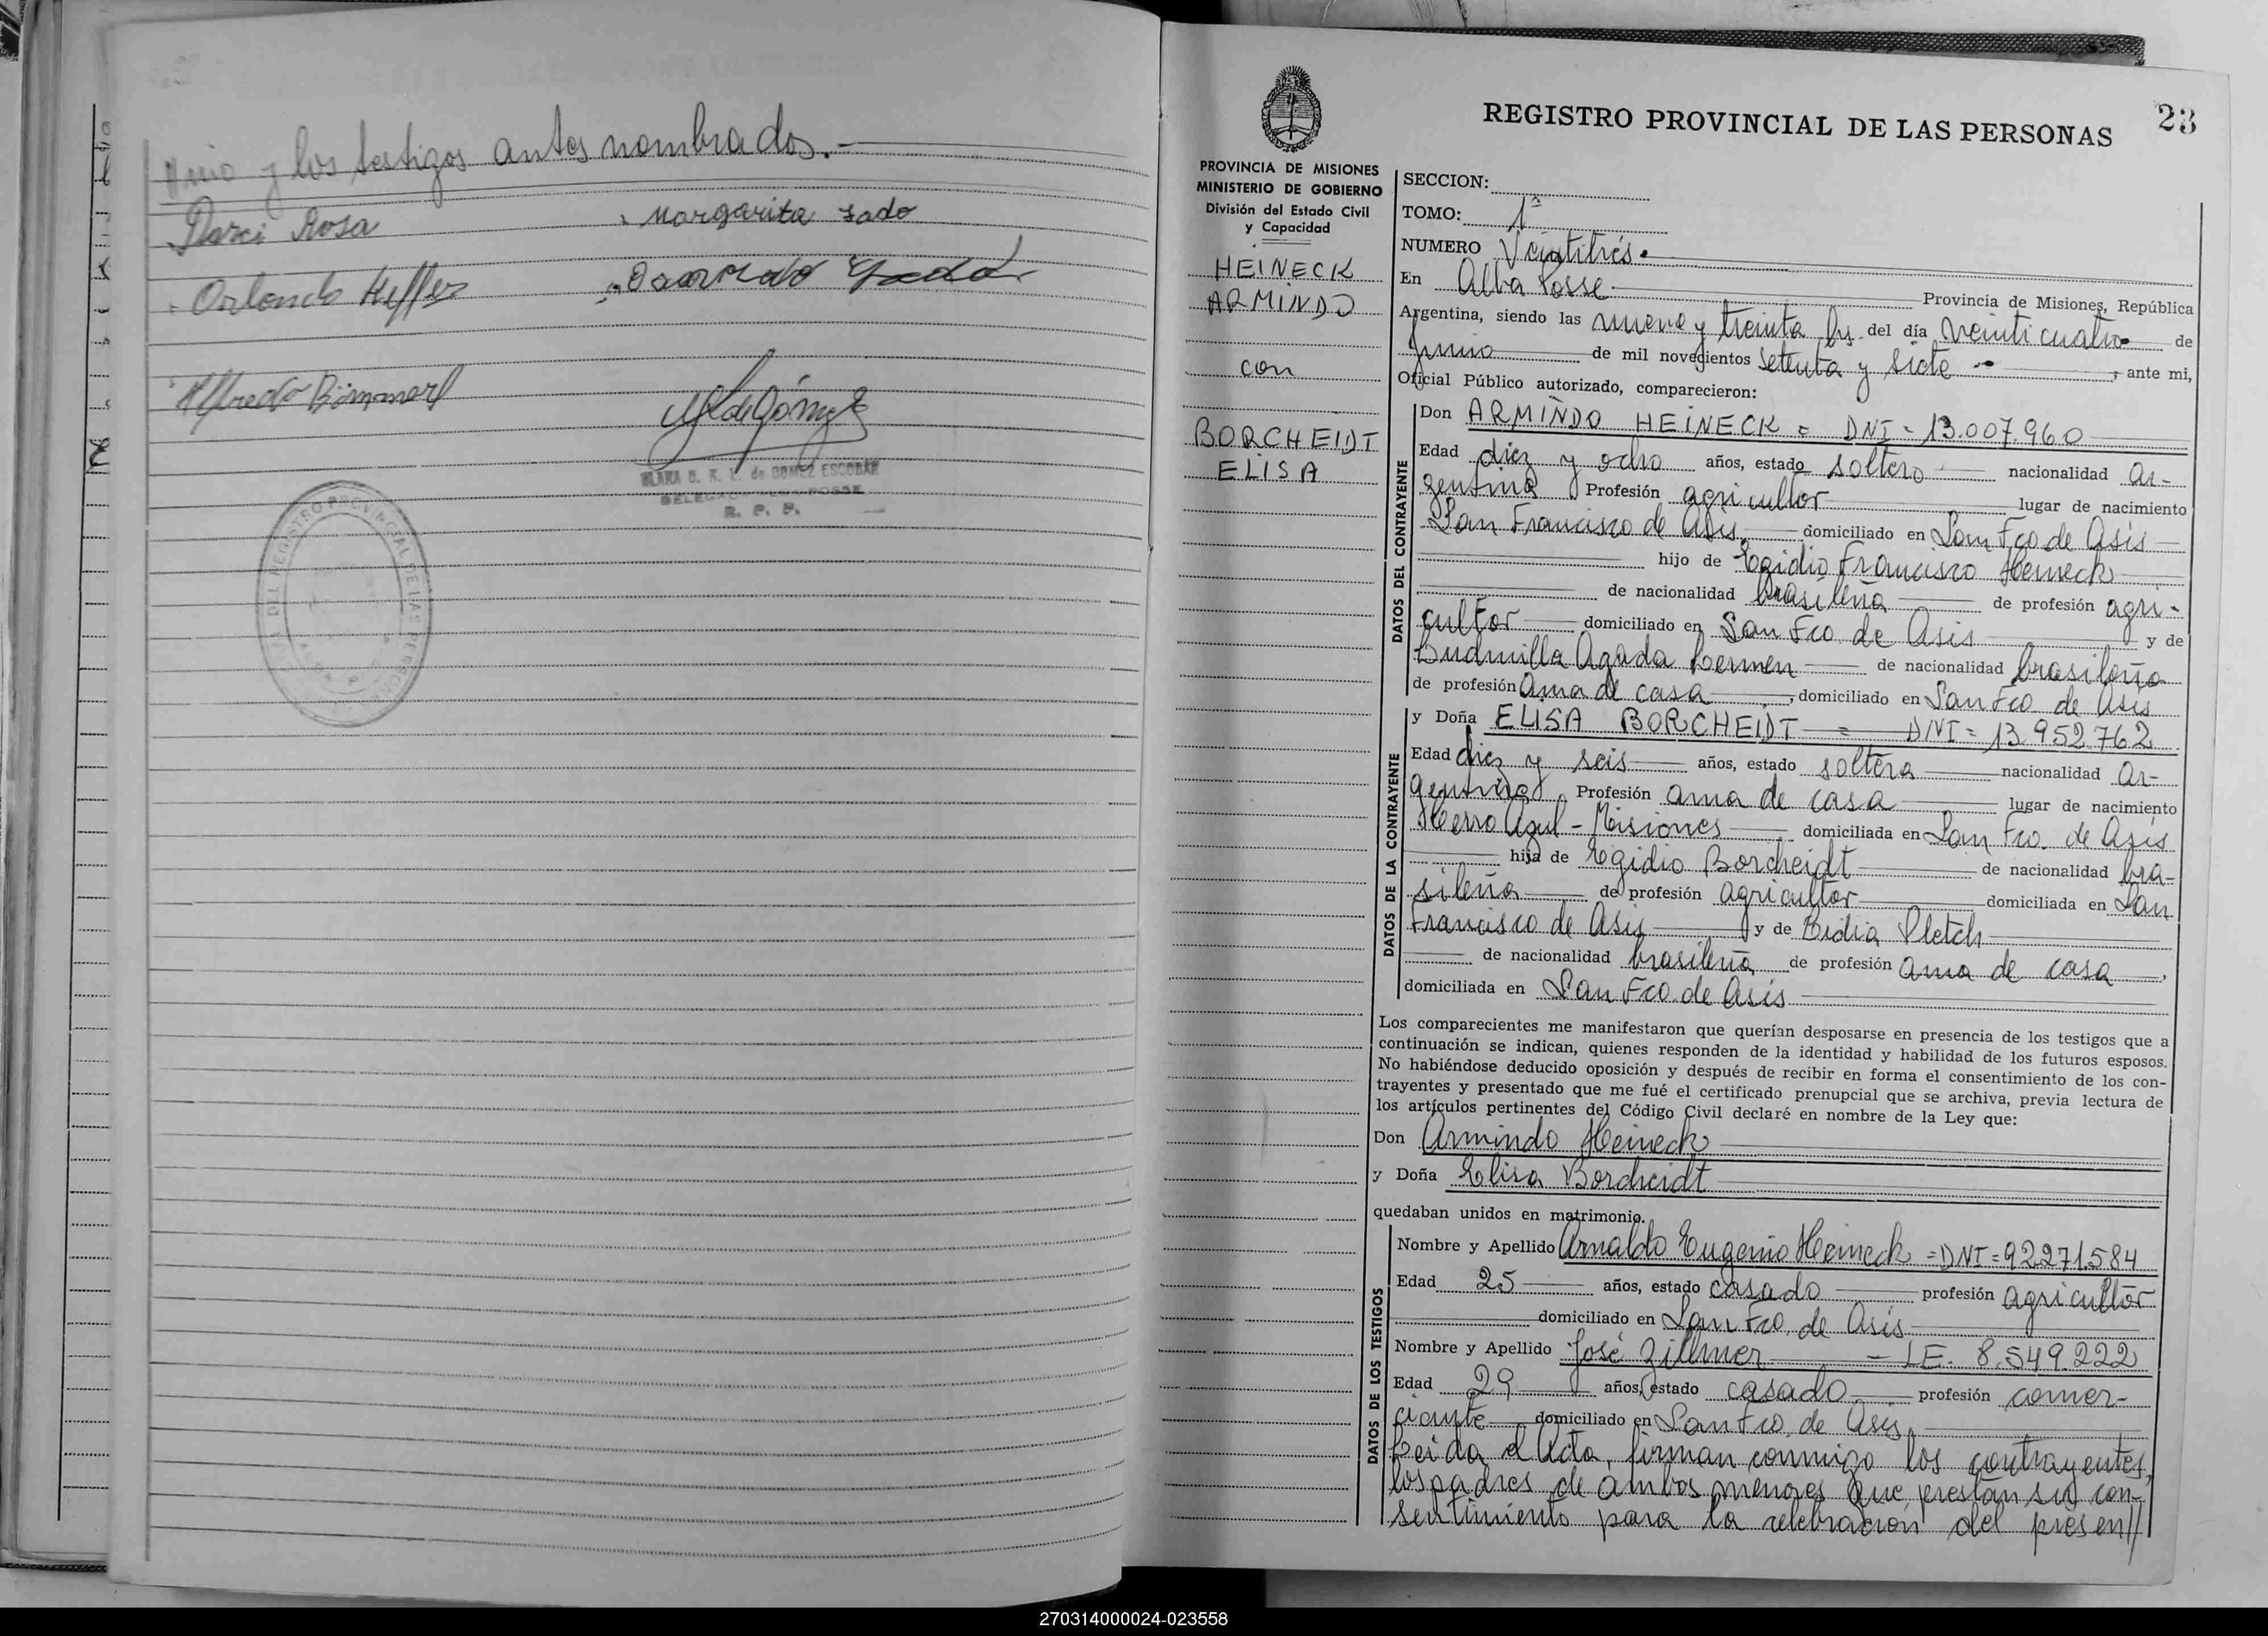 y los testigos antes nombrados.-
Darci Rosa
Margarita Sado
Orlando Heffer
Alfredo Bömmerl
MLdeGómez
CLARA D. K. L. de GOMEZ ESCOBAR
DELEGADA ALBA POSSE
R. P. P.
DEL REGISTRO PROVINCIAL DE LAS PERSONAS
23
REGISTRO PROVINCIAL DE LAS PERSONAS
PROVINCIA DE MISIONES
MINISTERIO DE GOBIERNO
División del Estado Civil
y Capacidad
HEINECK
ARMINDO
con
BORCHEIDT
ELISA
SECCION:
TOMO: 1ª
NUMERO Veintitrés.
En Alba Posse Provincia de Misiones, República
Argentina, siendo las nueve y treinta hs. del día veinticuatro de
Junio de mil novecientos setenta y siete, ante mi,
Oficial Público autorizado, comparecieron:
DATOS DEL CONTRAYENTE
Don ARMINDO HEINECK = DNI = 13.007.960
Edad diez y ocho años, estado soltero nacionalidad ar-
gentina Profesión agricultor lugar de nacimiento
San Francisco de Asis, domiciliado en San Fco de Asis
hijo de Egidio Francisco Heineck
de nacionalidad brasileña de profesión agri-
cultor domiciliado en San Fco de Asis y de
Ludmilla Agada Lermen de nacionalidad brasileña
de profesión ama de casa, domiciliado en San Fco de Asis
DATOS DE LA CONTRAYENTE
y Doña ELISA BORCHEIDT = DNI = 13.952.762
Edad diez y seis años, estado soltera nacionalidad ar-
gentina Profesión ama de casa lugar de nacimiento
Cerro Azul - Misiones domiciliada en San Fco. de Asis
hija de Egidio Borcheidt de nacionalidad bra-
sileña de profesión agricultor domiciliada en San
Francisco de Asis y de Bidia Pletch
de nacionalidad brasileña de profesión ama de casa,
domiciliada en San Fco. de Asis
Los comparecientes me manifestaron que querían desposarse en presencia de los testigos que a
continuación se indican, quienes responden de la identidad y habilidad de los futuros esposos.
No habiéndose deducido oposición y después de recibir en forma el consentimiento de los con-
trayentes y presentado que me fué el certificado prenupcial que se archiva, previa lectura de
los artículos pertinentes del Código Civil declaré en nombre de la Ley que:
Don Armindo Heineck
y Doña Elisa Borcheidt
quedaban unidos en matrimonio.
DATOS DE LOS TESTIGOS
Nombre y Apellido Arnaldo Eugenio Heineck = DNI = 92271.584
Edad 25 años, estado casado profesión agricultor
domiciliado en San Fco. de Asis
Nombre y Apellido José Zillmer - LE. 8.549.222
Edad 29 años, estado casado profesión comer-
ciante domiciliado en San Fco. de Asis
Leida el Acta, firman conmigo los contrayentes,
los padres de ambos menores que prestan su con-
sentimiento para la celebración del presen//
270314000024-023558